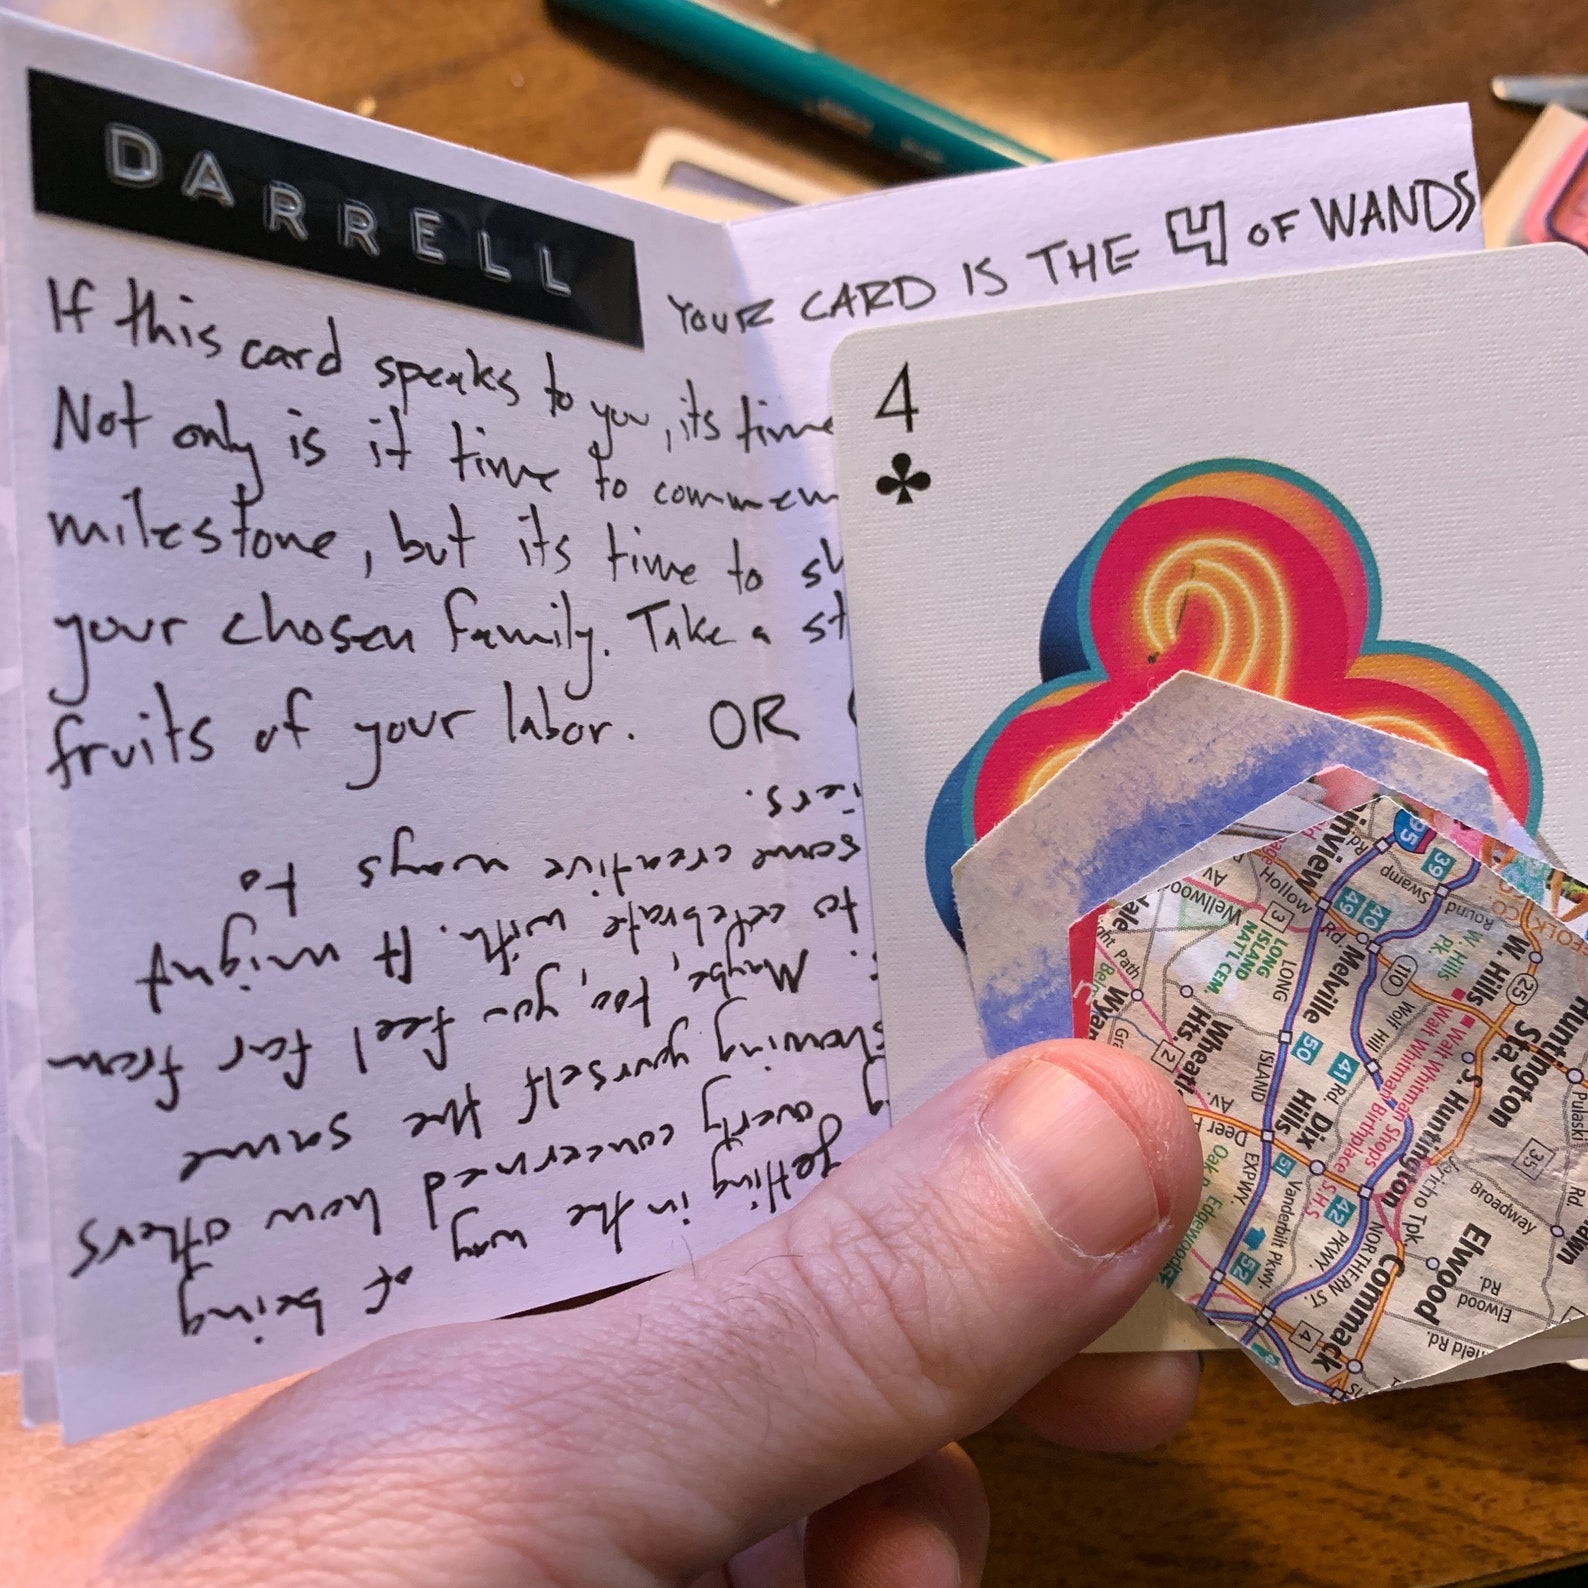 DARRELL
YOUR CARD IS THE 4 OF WANDS
If this card speaks to you, its time
Not only is it time to commem
milestone, but its time to sh
your chosen family. Take a st
fruits of your labor. OR
of being getting in the way
overly concerned how others
showing yourself the same
Maybe, you, too, feel far from
to celebrate with. It might
some creative ways to
iers.
4
95
39
Rd.
Swamp
Round
Hollow
Av.
Wellwood
3
49
40
Rd.
LONG
ISLAND
NAT'L CEM.
Melville
110
W. Hills
PK.
W. Hills
25
Huntington
Sta.
Walt Whitman Shops
Walt Whitman Birthplace S.H.S.
Wolf Hill
Rd.
S. Huntington
Jericho Tpk.
Pulaski
Rd.
35
Broadway
Elwood
Elwood
Rd.
Commack
NORTHERN ST.
PKWY.
42
41
50
51
52
Dix
Hills
Vanderbilt Pkwy.
LONG
ISLAND
EXPWY.
Deer
Av.
Wheatl
Hts.
2
Wyan
Path
4